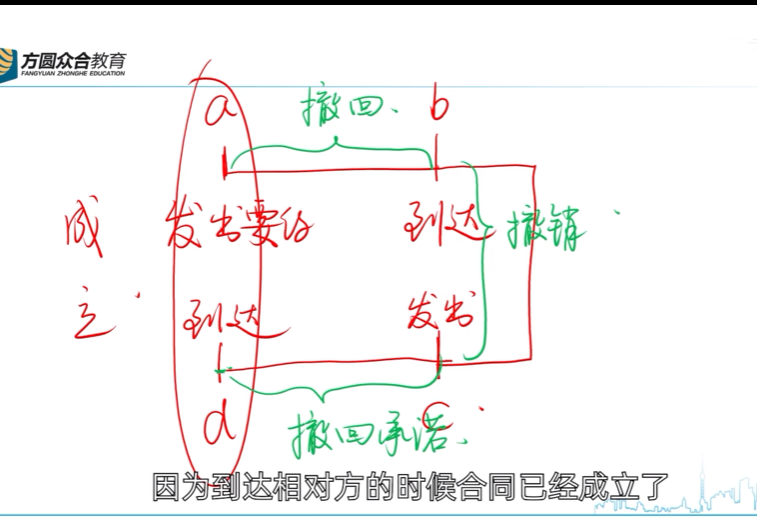 方圆众合教育
FANGYUAN ZHONGHE EDUCATION
a 撤回 b
成 发出要约 到达 撤销
立 到达 发出
d 撤回承诺 c
因为到达相对方的时候合同已经成立了